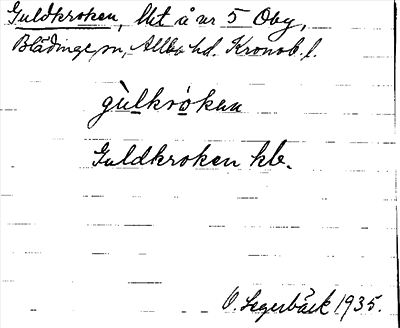 Guldkroken, lht å nr 5 Oby,
Blädinge sn, Allbo hd. Kronob. l.
gùlkròkan
Guldkroken kb.
O. Segerbäck 1935.